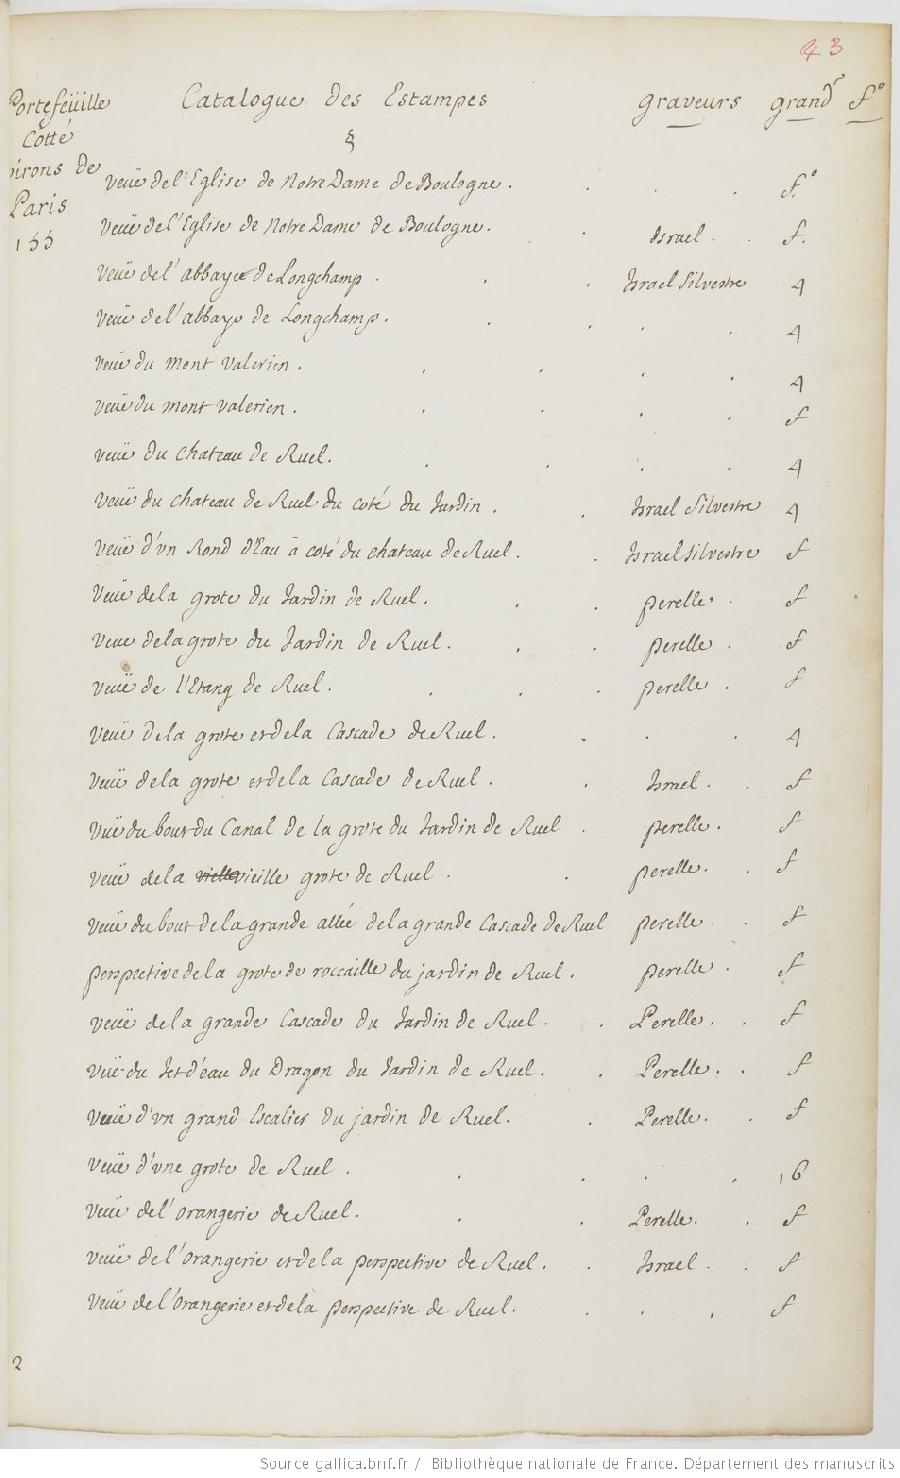 43
Portefeüille Catalogue des Estampes graveurs grandr fo
Cotté §
virons de
Paris
155
veüe de l'Eglise de Notre Dame de Boulogne. fo
Veüe de l'Eglise de Notre Dame de Boulogne. Israel f.
Veüe de l'abbaye de Longchamp. Israel Silvestre 4
Veüe de l'abbaye de Longchamp. 4
Veüe du mont Valerien. 4
Veüe du mont valerien. f
veüe du chateau de Ruel. 4
veüe du chateau de Ruel du coté du Jardin. Israel Silvestre 4
Veüe d'vn Rond d'Eau à coté du chateau de Ruel. Israel Silvestre f
Veüe de la grote du Jardin de Ruel. perelle f
Veue de la grote du Jardin de Ruel. perelle f
veüe de l'Etang de Ruel. perelle f
veüe de la grote et de la Cascade de Ruel. 4
Veüe de la grote et de la Cascade de Ruel. Israel f
Veüe du bout du Canal de la grote du Jardin de Ruel perelle. f
veüe de la vieille grote de Ruel. perelle. f
Veüe du bout de la grande allée de la grande Cascade de Ruel perelle f
perspective de la grote de roccaille du jardin de Ruel. perelle. f
veüe de la grande Cascade du Jardin de Ruel. Perelle. f
Veüe du Jet d'eau du Dragon du Jardin de Ruel. Perelle. f
Veüe d'vn grand Escalier du jardin de Ruel. Perelle. f
veüe d'vne grote de Ruel. 6
Veüe de l'orangerie de Ruel. Perelle. f
Veüe de l'orangerie et de la perspective de Ruel. Israel f
Veüe de l'Orangerie et de la perspective de Ruel. f
2
Source gallica.bnf.fr / Bibliothèque nationale de France. Département des manuscrits